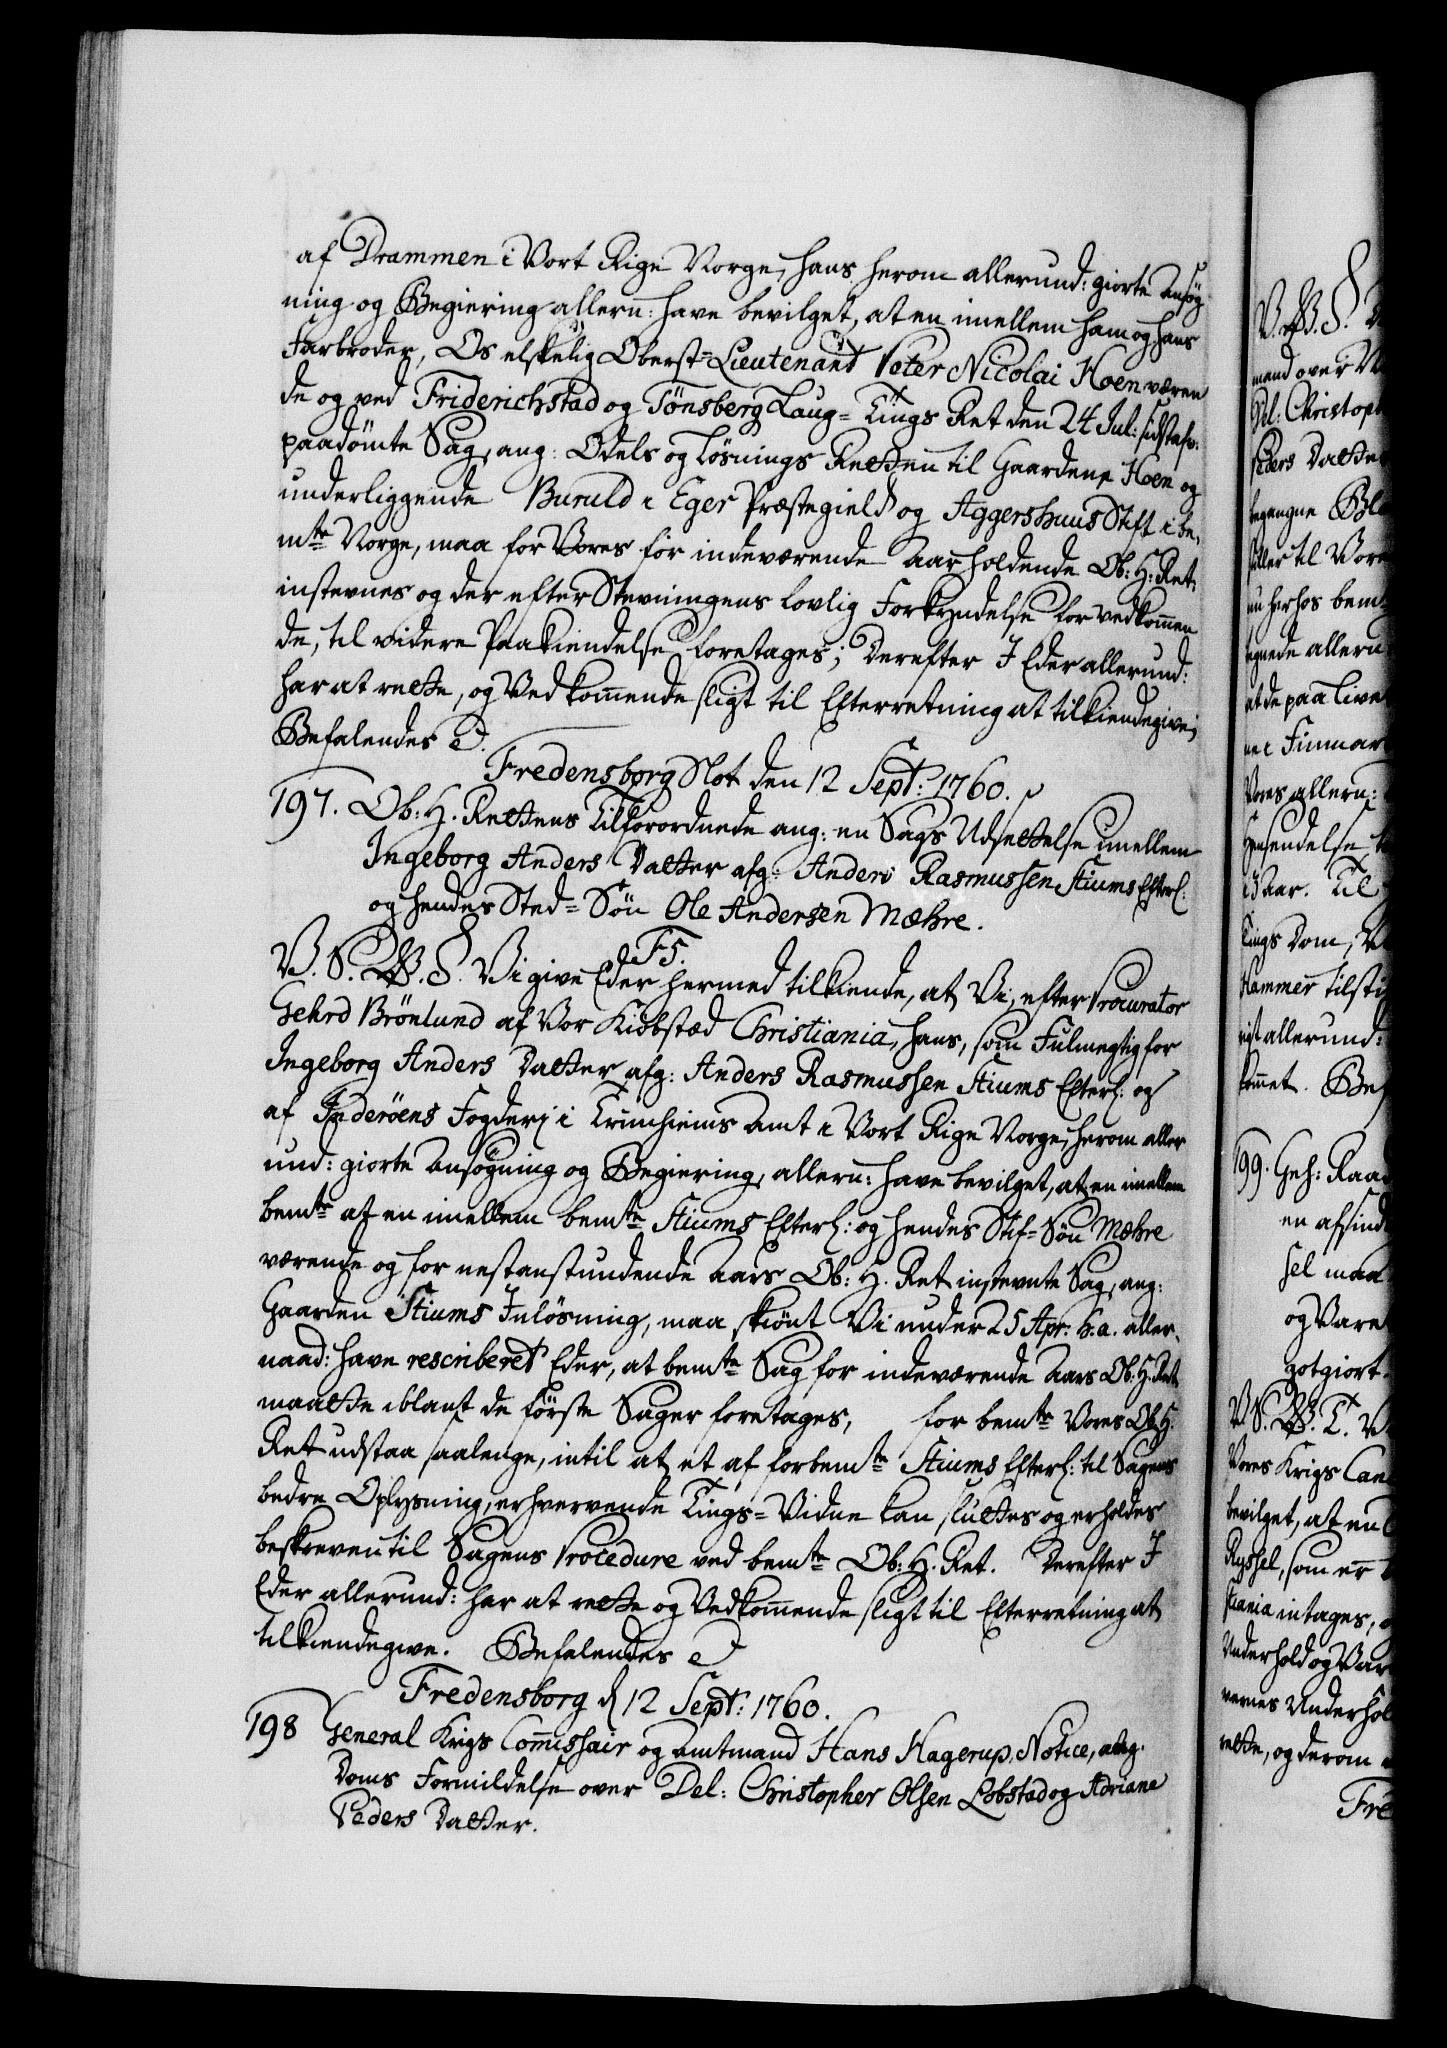 af Drammen i Vort Rige Norge, hans herom allerund: giorte Ansøg-
ning og Begiering allern: have bevilget, at en imellem ham og hans
Farbroder, Os elskelig Oberst-Lieutenant Peter Nicolai Hoen væren-
de og ved Friderichstad og Tönsberg Laug-Tings Ret den 24 Jul: sidstafv:
paadömte Sag, ang: Odels og Løsnings Retten til Gaardene Hoen og
underliggende Buruld i Eger Præstegield og Aggershuus Stift i be-
mte Norge, maa for Vores for indeværende Aar holdende Ob: H: Ret,
instevnes og der efter Stevningens lovlig Forkyndelse for vedkom̄en
de, til videre Paakiendelse foretages; Derefter I Eder allerund:
har at rette, og Vedkom̄ende sligt til Efterretning at tilkiendegive;
Befalendes etc.
Fredensborg Slot den 12 Sept: 1760.
197. Ob: H. Rettens Tilforordnede ang: en Sags Udsettelse imellem
Ingeborg Anders Datter afg: Anders Rasmussen Stiums Efterl:
og hendes Sted-Søn Ole Andersen Mæhre.
F5.
V. S. G. V. Vi give Eder hermed tilkiende, at Vi, efter Procurator
Gehrd Brönlund af Vor Kiöbstæd Christiania, hans, som Fulmegtig for
Ingeborg Anders Datter afg: Anders Rasmussen Stiums Efterl: og
af Inderöens Fogderi i Trunhiems Amt i Vort Rige Norge, herom aller
und: giorte Ansøgning og Begiering, allern: have bevilget, at en imellem
bemte af en imellem bemte Stiums Efterl: og hendes Stif-Søn Mæhre
værende og for nestanstundende Aars Ob: H. Ret instevnte Sag, ang:
Gaarden Stiums Inlösning, maa, skiönt Vi under 25 Apr: h.a. aller-
naad: have rescriberet Eder, at bemte Sag for indeværende Aars Ob. H. Ret
maatte iblant de förste Sager foretages, for bemte Vores Ob. H.
Ret udstaa saalenge, intil at et af forbemte Stiums Efterl: til Sagens
bedre Oplysning, erhvervende Tings-Vidne kan sluttes og erholdes
beskreven til Sagens Procedure ved bemte Ob: H. Ret. Derefter I
Eder allerund: har at rette og Vedkom̄ende sligt til Efterretning at
tilkiendegive. Befalendes etc.
Fredensborg d 12 Sept: 1760.
198 General Krigs Com̄issair og Amtmand Hans Hagerup, Notice, ang.
Doms Formildelse over Del: Christopher Olsen Lobstad og Adriane
Peders Datter.
mand over
Del: Christoph
Peders Datte
begangne
til Vore
herhos bem
allern
at de paa Live
i Finmar
Vores allern:
Aar. Til
Tings Dom,
Hammer tilst
allerund:
199. Geh: Raa
en afsind
sel maa
og Vare
gotgiort.
Vores Krigs Can
bevilget, at en
som er
stiania intages,
Underhold og Var
vernes Underhol
rette, og derom
Fre